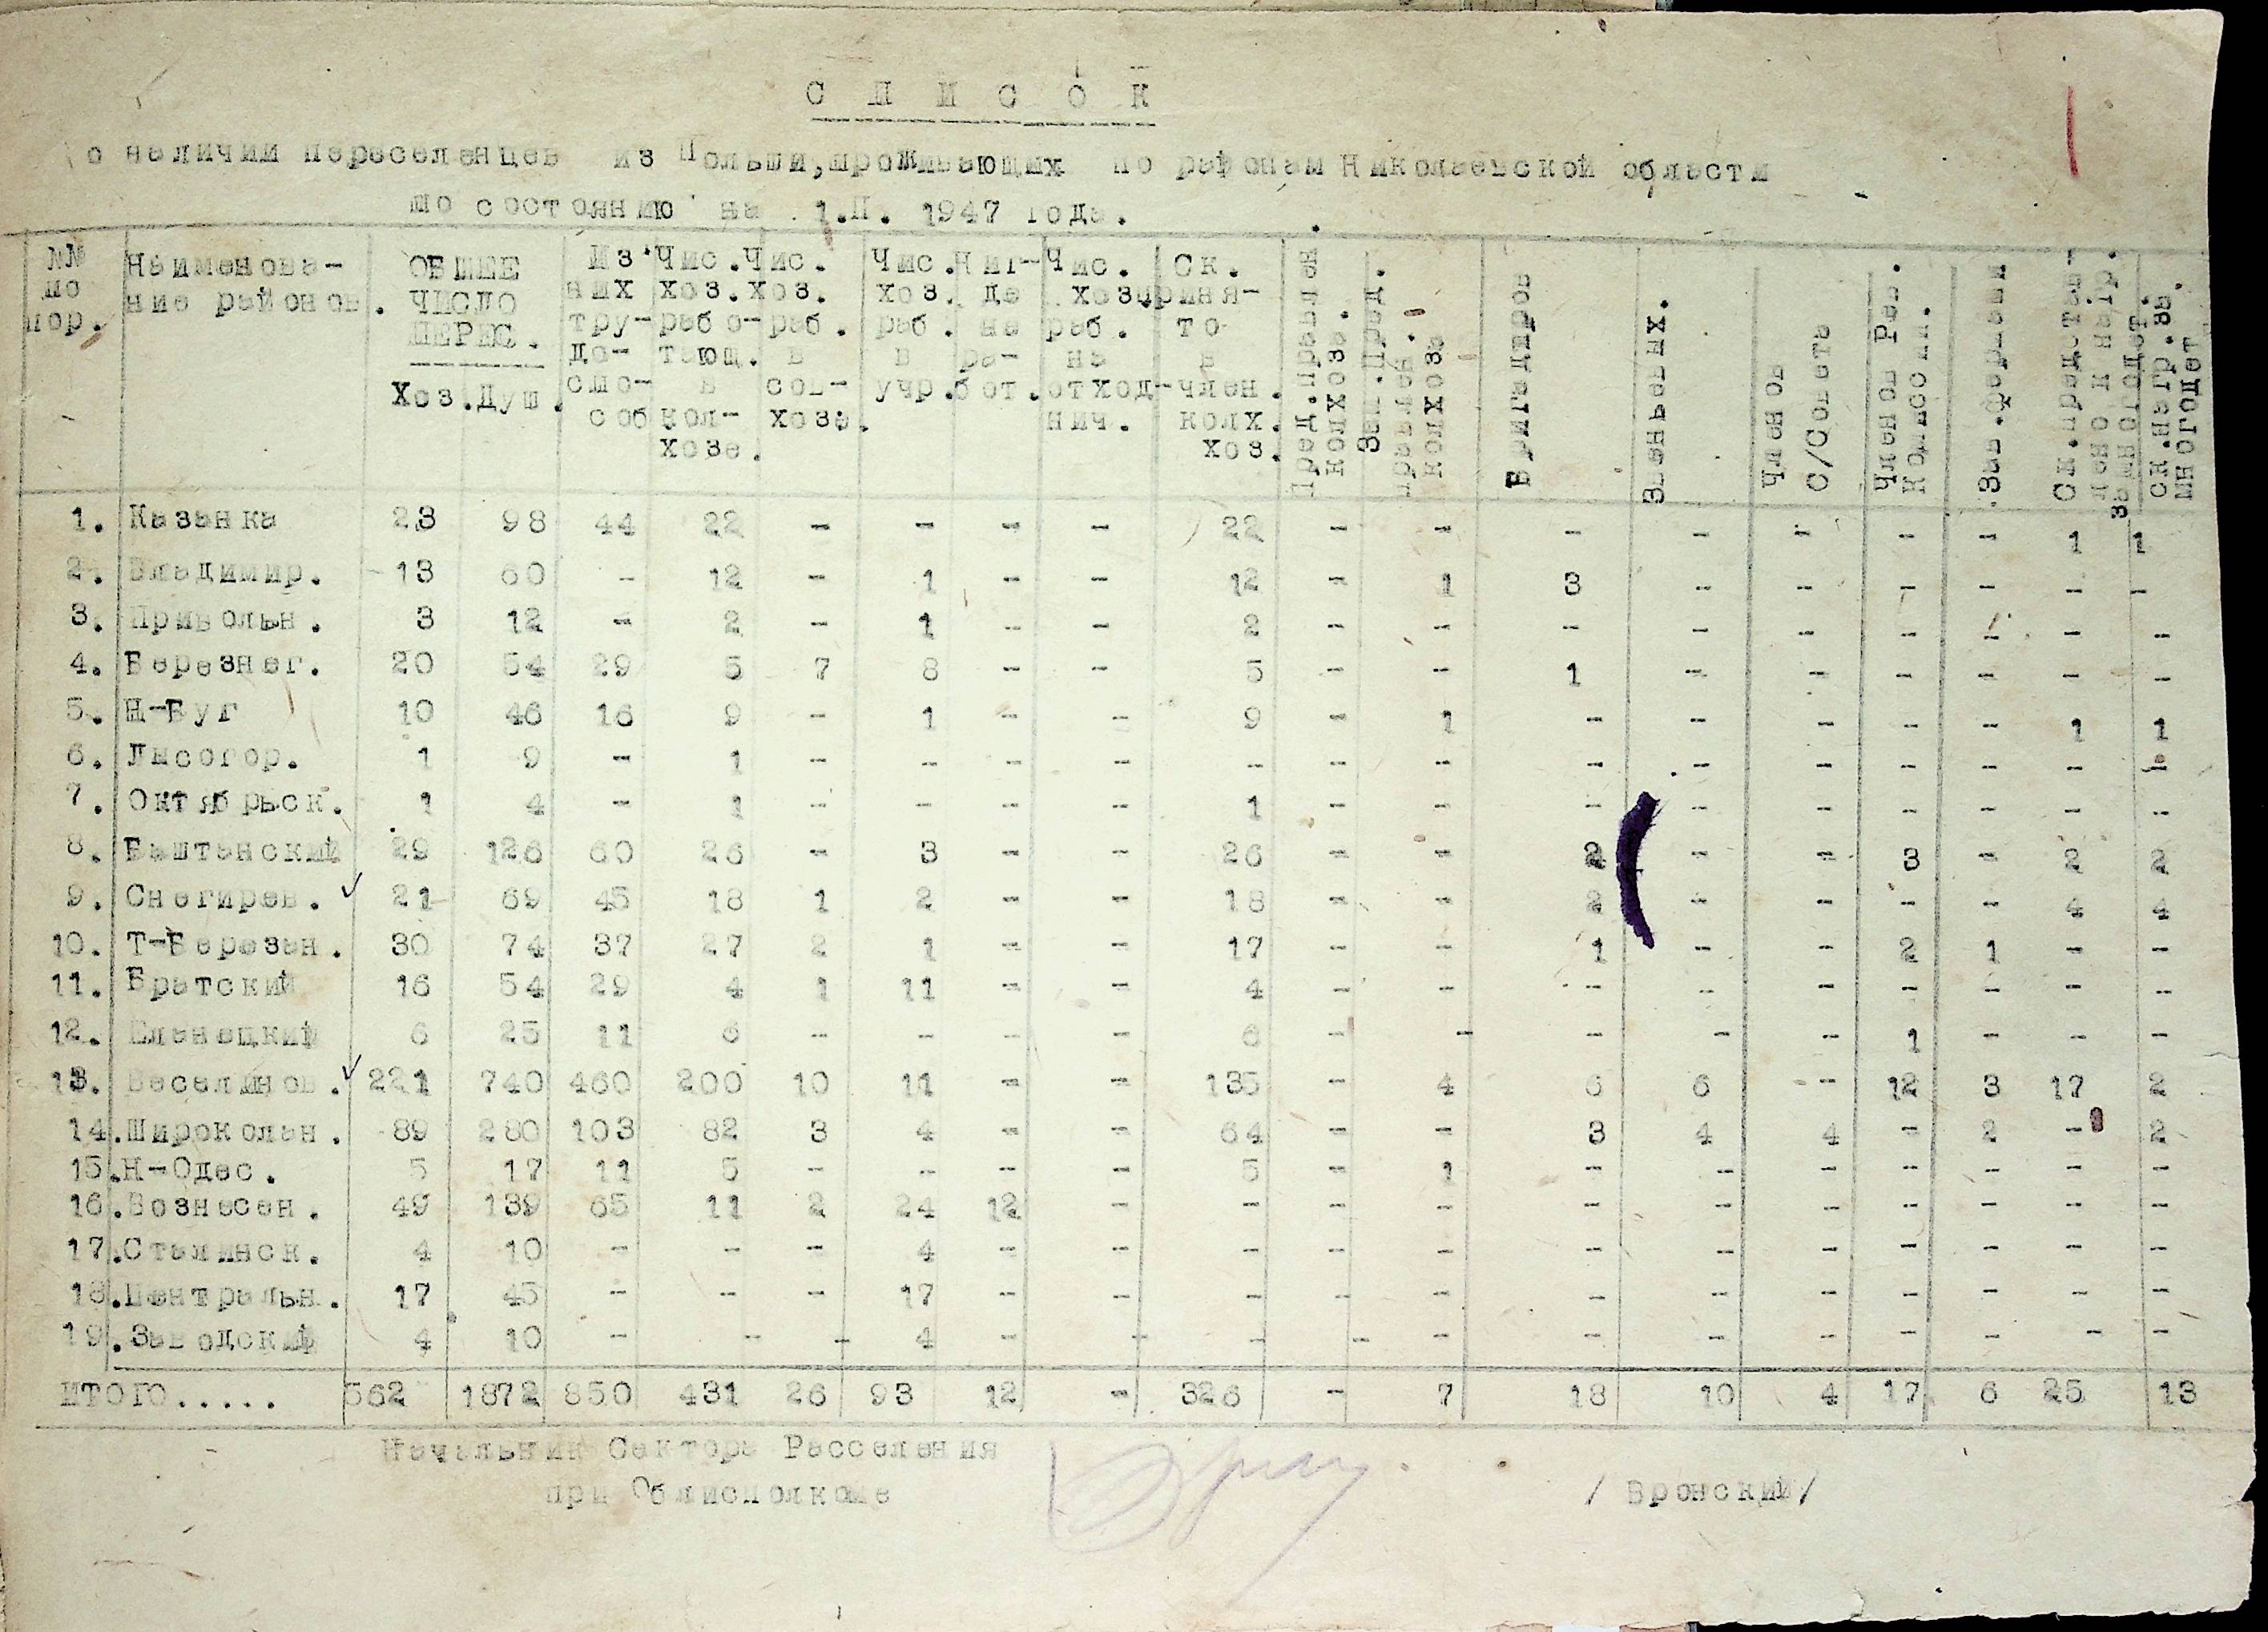 СПИСОК
о наличии переселенцев из Польши, проживающих по районам Николаевской области
по состоянию на 1.II. 1947 года.
№№ по пор. | Наименова-ние районов. | ОБЩЕЕ ЧИСЛО ПЕРЕС. Хоз. Душ. | Из них тру-до-спо-соб | Чис. хоз. рабо-тающ. в кол-хозе. | Чис. хоз. раб. в сов-хозе. | Чис. хоз. раб. в учр. | Ниг-де на ра-бот. | Чис. хоз. раб. на отход-нич. | Ск. приня-то в член. колх. хоз. | Пред. правлен колхоза. | Зам. Пред. правлен. колхоза | Бригадиров | Звеньевых. | Членов С/Совета | Членов Рев. Комиссии. | Зав. фермами | Ск. представ-лено к нагр. | Ск. нагр. за. многодет
1. Казанка 23 98 44 22 - - - - 22 - - - - - - - 1 1
2. Владимир. 13 60 - 12 - 1 - - 12 - 1 3 - - - - - -
3. Привольн. 3 12 - 2 - 1 - - 2 - - - - - - - - -
4. Березнег. 20 54 29 5 7 8 - - 5 - - 1 - - - - - -
5. Н-Буг 10 46 16 9 - 1 - - 9 - 1 - - - - - 1 1
6. Лысогор. 1 9 - 1 - - - - - - - - - - - - - -
7. Октябрьск. 1 4 - 1 - - - - 1 - - - - - - - - -
8. Баштанский 29 126 60 26 - 3 - - 26 - - 2 - - 3 - 2 2
9. Снегирев. 21 69 45 18 1 2 - - 18 - - 2 - - - - 4 4
10. Т-Березан. 30 74 37 27 2 1 - - 17 - - 1 - - 2 1 - -
11. Братский 16 54 29 4 1 11 - - 4 - - - - - - - - -
12. Еланецкий 6 25 11 6 - - - - 6 - - - - - 1 - - -
13. Веселинов. 221 740 460 200 10 11 - - 135 - 4 6 6 - 12 3 17 2
14. Широколан. 89 280 103 82 3 4 - - 64 - - 3 4 4 - 2 - 2
15. Н-Одес. 5 17 11 5 - - - - 5 - 1 - - - - - - -
16. Вознесен. 49 139 65 11 2 24 12 - - - - - - - - - - -
17. Сталинск. 4 10 - - - 4 - - - - - - - - - - - -
18. Центральн. 17 45 - - - 17 - - - - - - - - - - - -
19. Заводский 4 10 - - - 4 - - - - - - - - - - - -
ИТОГО..... 562 1872 850 431 26 93 12 - 326 - 7 18 10 4 17 6 25 13
Начальник Сектора Расселения
при Облисполкоме / Вронский/